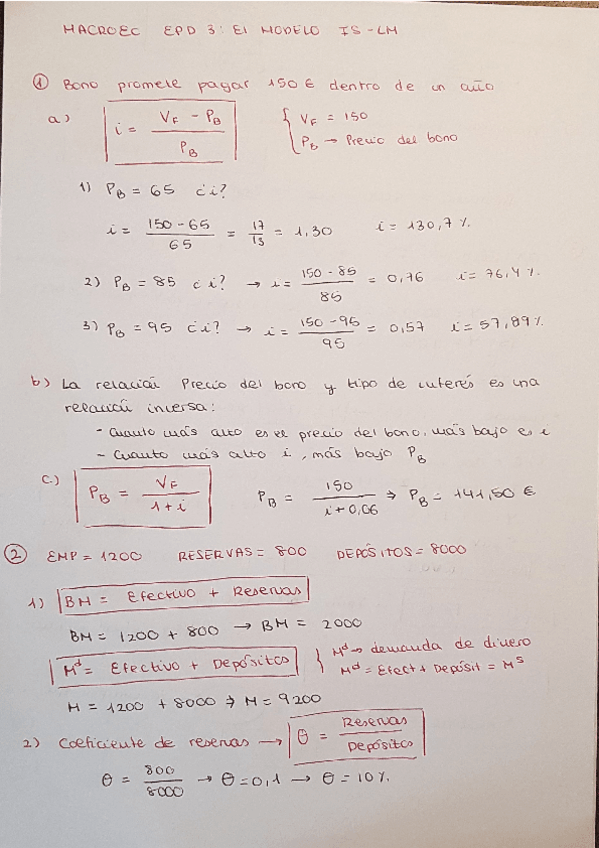 MACROEC EPD 3: El MODELO IS-LM
① Bono promete pagar 150 € dentro de un año
a) i = (V_F - P_B) / P_B { V_F = 150
P_B → Precio del bono
1) P_B = 65 ¿i?
i = (150-65) / 65 = 17/13 = 1,30 i = 130,7 %.
2) P_B = 85 ¿i? → i = (150-85) / 85 = 0,76 i = 76,4 %.
3) P_B = 95 ¿i? → i = (150-95) / 95 = 0,57 i = 57,89 %
b) La relación Precio del bono y tipo de interés es una
relación inversa:
- Cuanto más alto es el precio del bono, más bajo es i
- Cuanto más alto i, más bajo P_B
c.) P_B = V_F / (1+i) P_B = 150 / (i+0,06) ⇒ P_B = 141,50 €
② EMP = 1200 RESERVAS = 800 DEPÓSITOS = 8000
1) BM = Efectivo + Reservas
BM = 1200 + 800 → BM = 2000
M^d = Efectivo + Depósitos { M^d → demanda de dinero
M^d = Efect + Depósit = M^s
M = 1200 + 8000 ⇒ M = 9200
2) Coeficiente de reservas → θ = Reservas / Depósitos
θ = 800 / 8000 → θ = 0,1 → θ = 10 %.